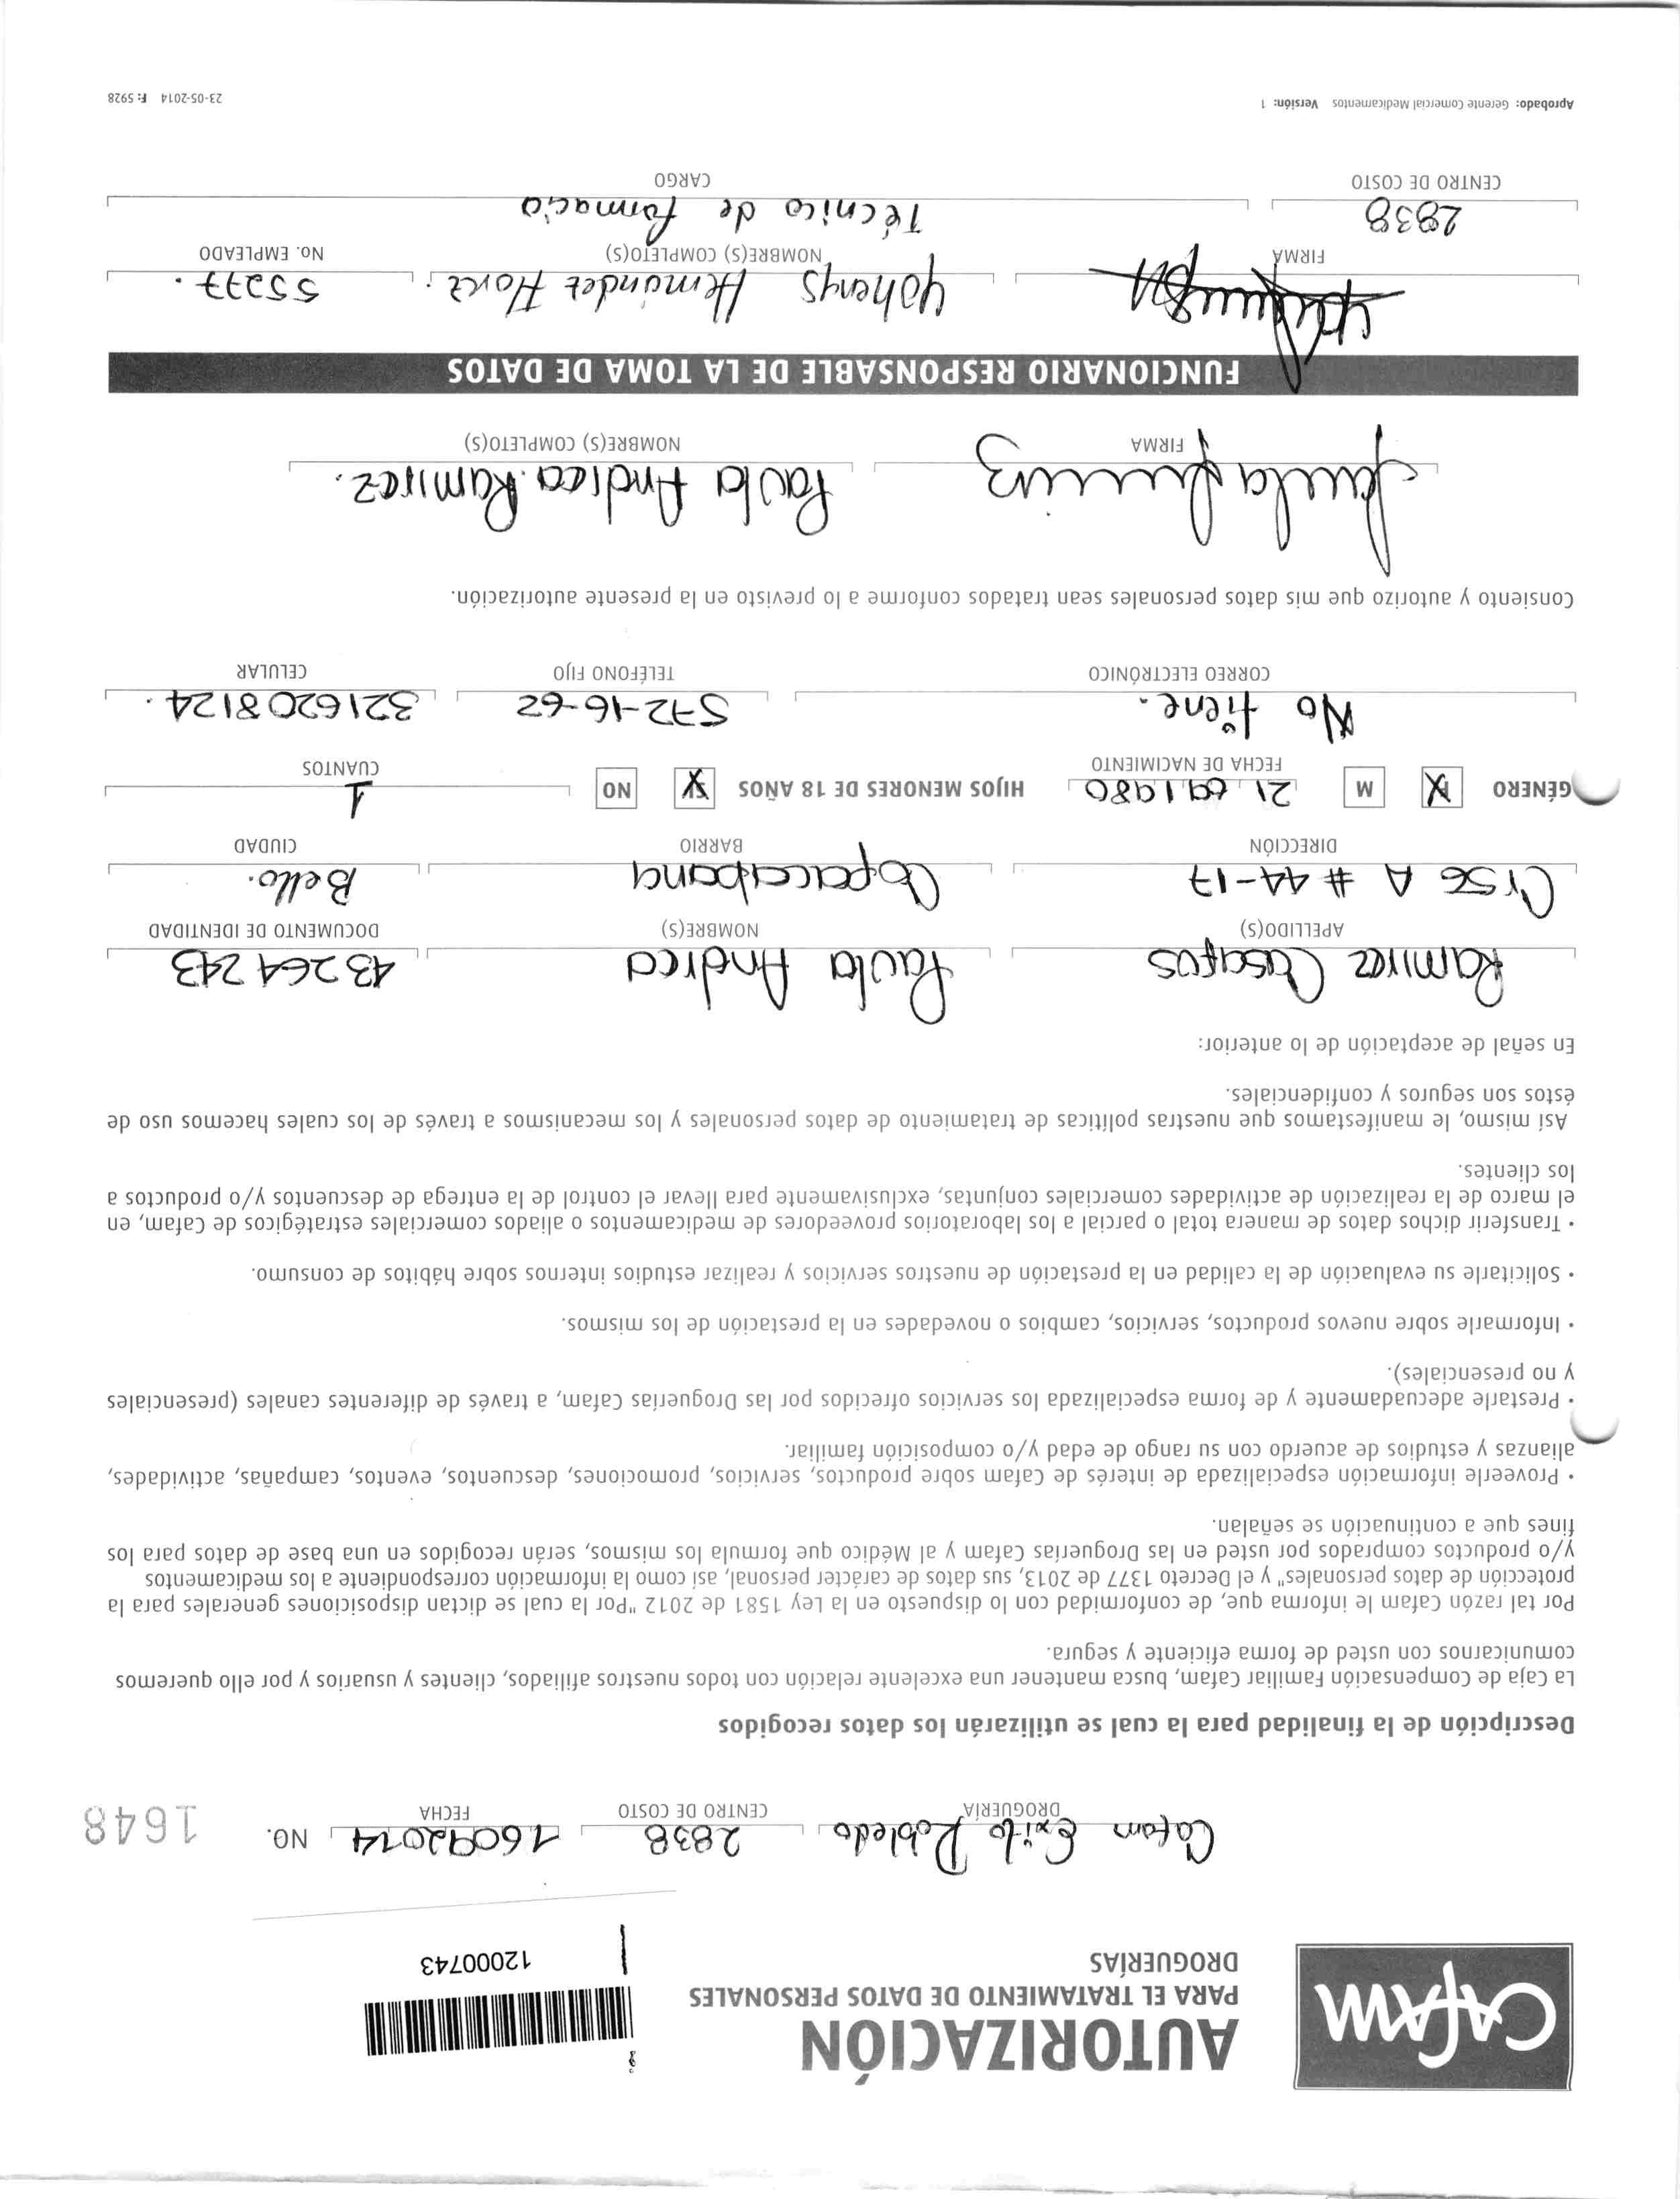 CAFAM
AUTORIZACIÓN
PARA EL TRATAMIENTO DE DATOS PERSONALES
DROGUERÍAS
12000743
Cafam Exito Robledo 2838 16092014 NO. 1648
DROGUERÍA CENTRO DE COSTO FECHA
Descripción de la finalidad para la cual se utilizarán los datos recogidos
La Caja de Compensación Familiar Cafam, busca mantener una excelente relación con todos nuestros afiliados, clientes y usuarios y por ello queremos
comunicarnos con usted de forma eficiente y segura.
Por tal razón Cafam le informa que, de conformidad con lo dispuesto en la Ley 1581 de 2012 "Por la cual se dictan disposiciones generales para la
protección de datos personales" y el Decreto 1377 de 2013, sus datos de carácter personal, así como la información correspondiente a los medicamentos
y/o productos comprados por usted en las Droguerías Cafam y al Médico que formula los mismos, serán recogidos en una base de datos para los
fines que a continuación se señalan.
• Proveerle información especializada de interés de Cafam sobre productos, servicios, promociones, descuentos, eventos, campañas, actividades,
alianzas y estudios de acuerdo con su rango de edad y/o composición familiar.
• Prestarle adecuadamente y de forma especializada los servicios ofrecidos por las Droguerías Cafam, a través de diferentes canales (presenciales
y no presenciales).
• Informarle sobre nuevos productos, servicios, cambios o novedades en la prestación de los mismos.
• Solicitarle su evaluación de la calidad en la prestación de nuestros servicios y realizar estudios internos sobre hábitos de consumo.
• Transferir dichos datos de manera total o parcial a los laboratorios proveedores de medicamentos o aliados comerciales estratégicos de Cafam, en
el marco de la realización de actividades comerciales conjuntas, exclusivamente para llevar el control de la entrega de descuentos y/o productos a
los clientes.
Así mismo, le manifestamos que nuestras políticas de tratamiento de datos personales y los mecanismos a través de los cuales hacemos uso de
éstos son seguros y confidenciales.
En señal de aceptación de lo anterior:
Ramirez Casafus Paula Andrea 43264243
APELLIDO(S) NOMBRE(S) DOCUMENTO DE IDENTIDAD
Cr 56 A # 44-17 Copacabana Bello.
DIRECCIÓN BARRIO CIUDAD
GÉNERO X M 21 09 1980 HIJOS MENORES DE 18 AÑOS X NO 1
FECHA DE NACIMIENTO CUANTOS
No tiene. 572-16-62 3216208124.
CORREO ELECTRÓNICO TELÉFONO FIJO CELULAR
Consiento y autorizo que mis datos personales sean tratados conforme a lo previsto en la presente autorización.
Paula Ramirez Paula Andrea Ramirez.
FIRMA NOMBRE(S) COMPLETO(S)
FUNCIONARIO RESPONSABLE DE LA TOMA DE DATOS
Yohenys Hernández Florez. 55277.
FIRMA NOMBRE(S) COMPLETO(S) No. EMPLEADO
2838 Técnico de farmacia
CENTRO DE COSTO CARGO
Aprobado: Gerente Comercial Medicamentos Versión: 1 23-05-2014 F: 5928